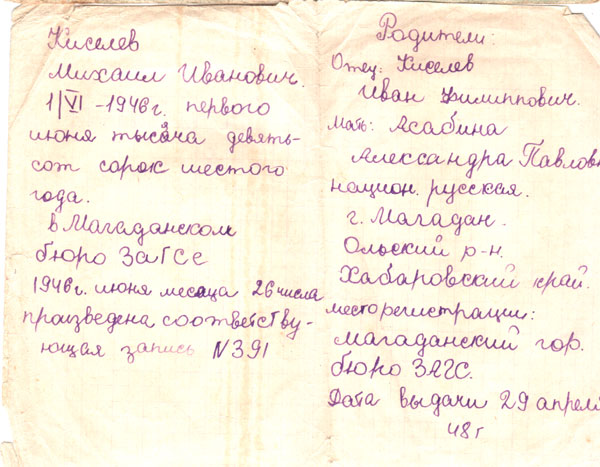 Киселев
Михаил Иванович.
1/VI - 1946 г. первого
июня тысяча девять-
сот сорок шестого
года.
в Магаданском
бюро ЗаГСе
1946 г. июня месяца 26 числа
произведена соответству-
ющая запись N 391
Родители:
Отец: Киселев
Иван Филиппович.
Мать: Асабина
Александра Павловн
национ. русская.
г. Магадан.
Ольский р-н.
Хабаровский край.
место регистрации:
магаданский гор.
бюро ЗАГС.
Дата выдачи 29 апрел
48 г